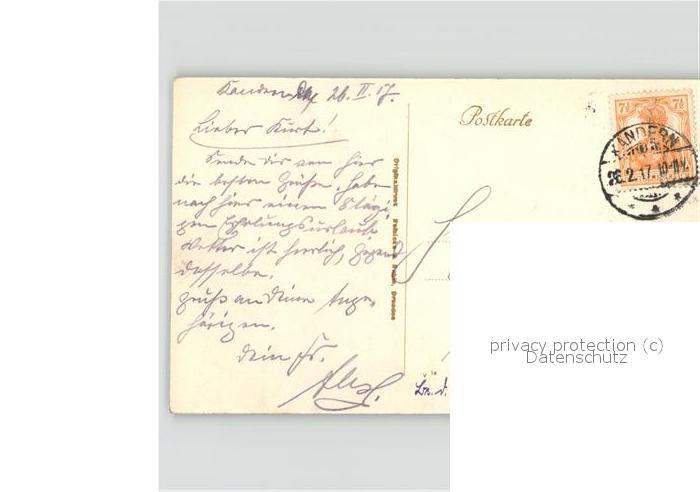 Kandern, 26. II. 17.
Lieber Kurt!
Sende dir von hier
die besten Grüße. Habe
noch hier einen 8 tägi-
gen Erholungsurlaub.
Wetter ist herrlich, Gegend
desselbe.
Gruß an deine Ange-
hörigen.
Dein Fr.
Postkarte
7½ 7½
KANDERN
26.2.17.10-11V.
privacy protection (c)
Datenschutz